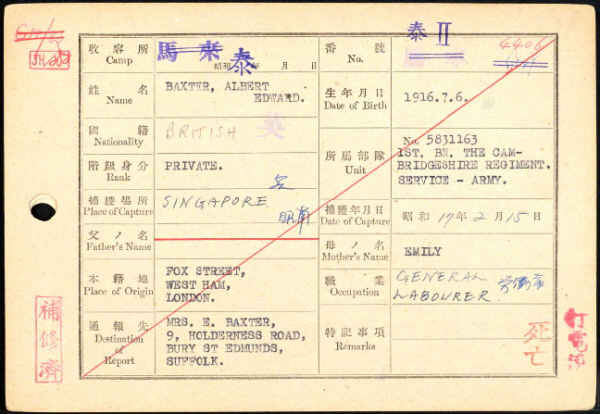 泰 II
收容所 Camp 馬来 泰 昭和 年 月 日
番號 No. 4406
姓名 Name BAXTER, ALBERT
EDWARD.
生年月日 Date of Birth 1916.7.6.
國籍 Nationality BRITISH 英
所屬部隊 Unit No. 5831163
1ST. BN. THE CAM-
BRIDGESHIRE REGIMENT.
SERVICE - ARMY.
階級身分 Rank PRIVATE.
捕獲場所 Place of Capture SINGAPORE
昭南
捕獲年月日 Date of Capture 昭和 17年 2月 15日
父ノ名 Father's Name
母ノ名 Mother's Name EMILY
本籍地 Place of Origin FOX STREET,
WEST HAM,
LONDON.
職業 Occupation GENERAL
LABOURER
通報先 Destination of Report MRS. E. BAXTER,
9, HOLDERNESS ROAD,
BURY ST EDMUNDS,
SUFFOLK.
特記事項 Remarks
死亡
補修濟